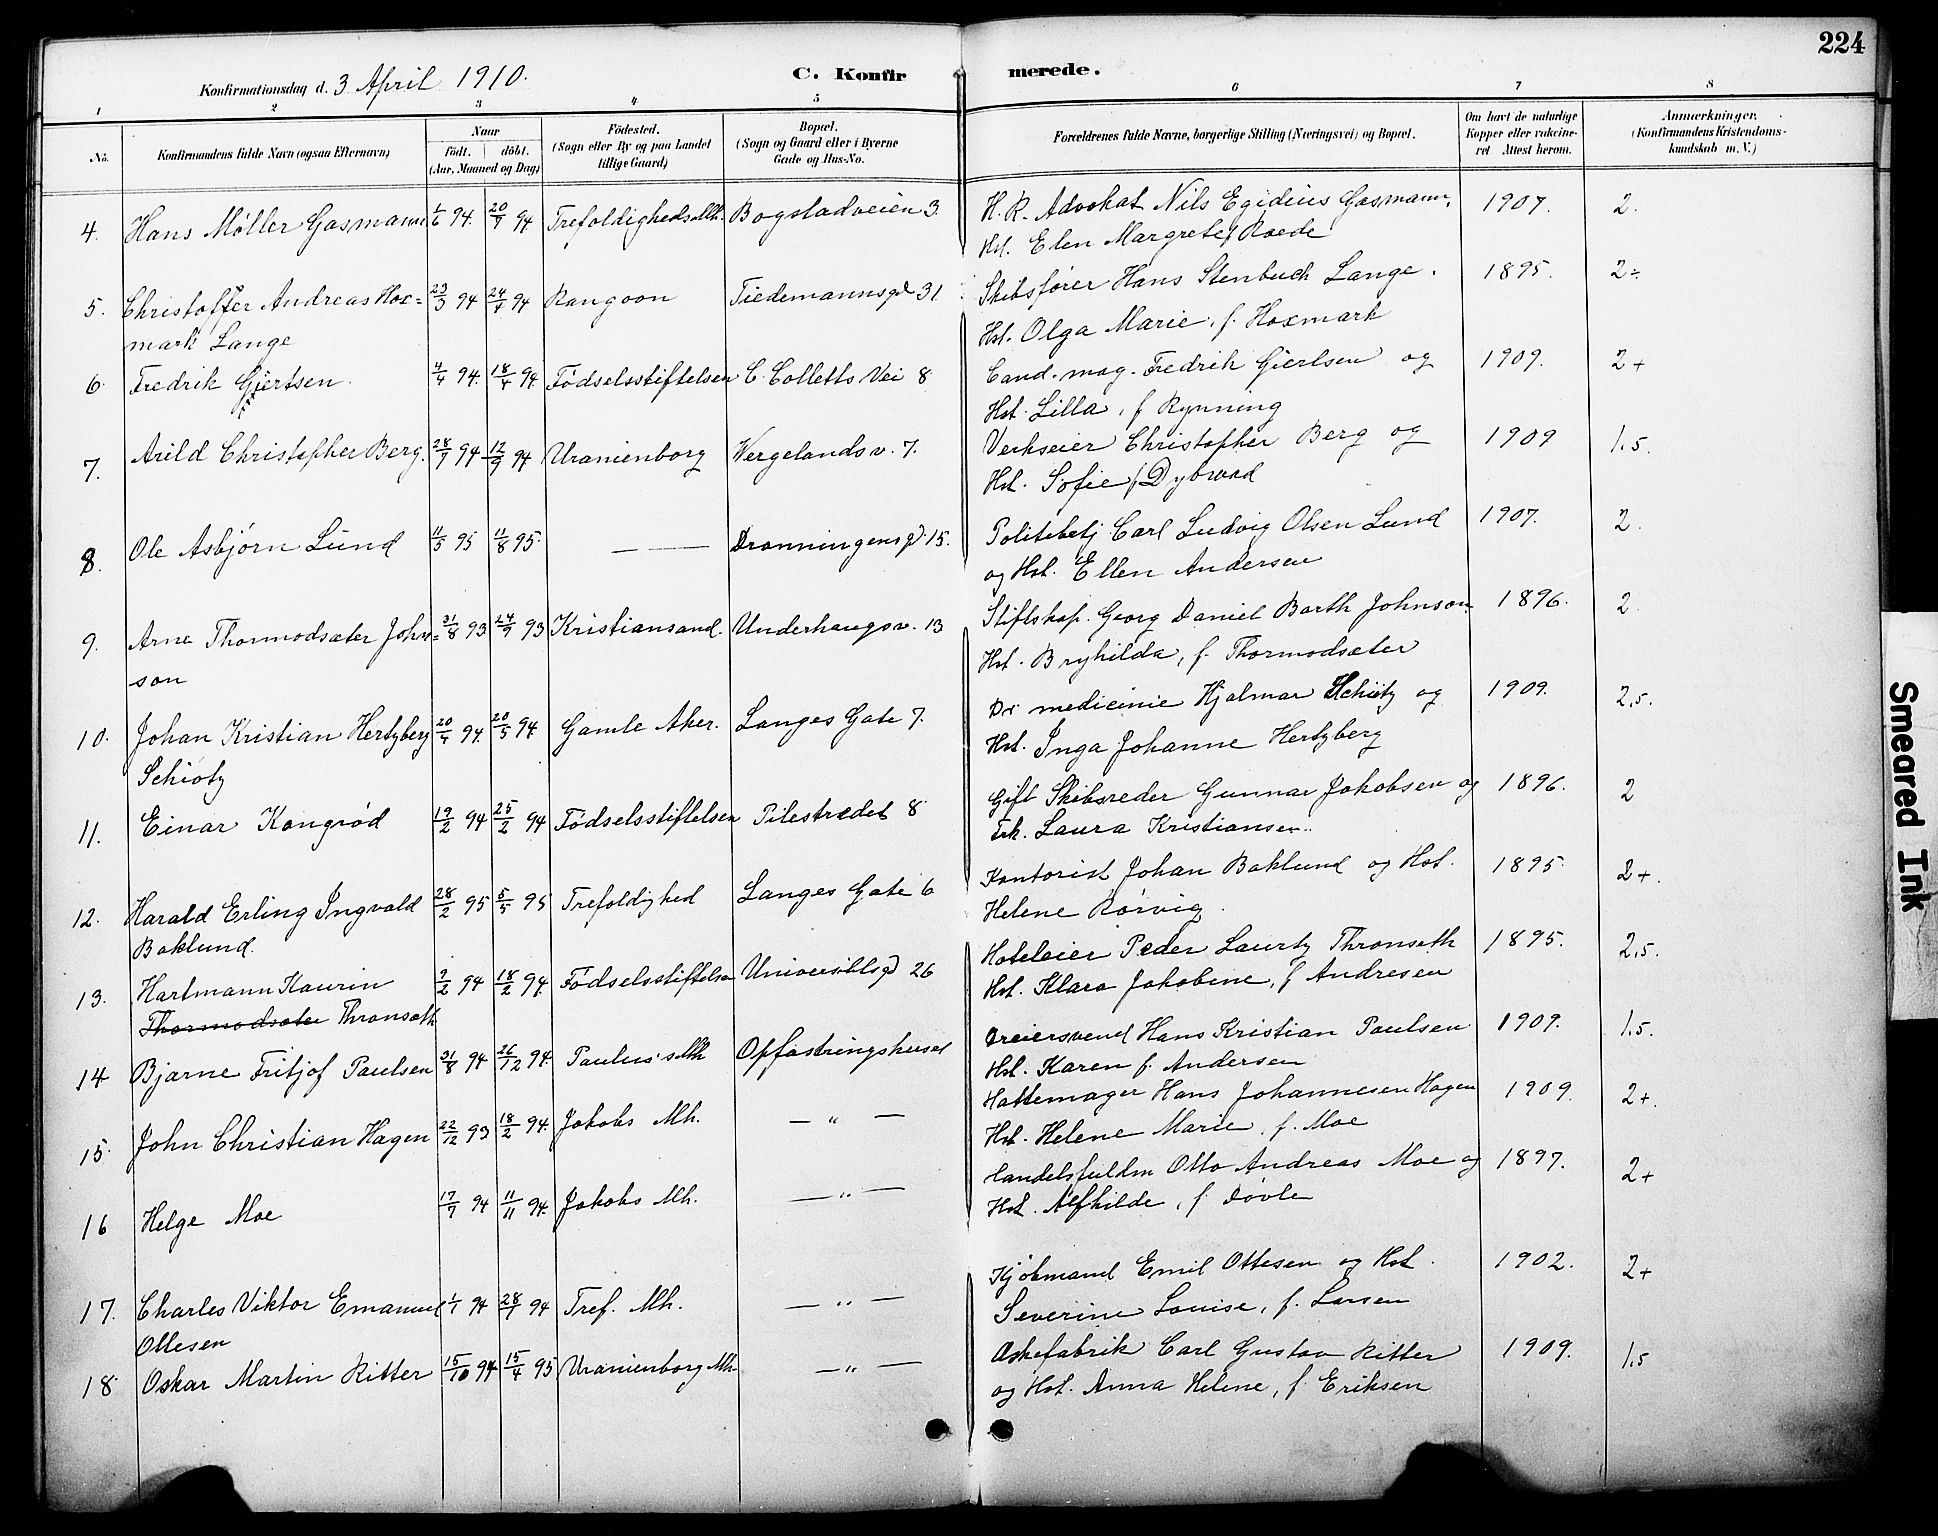 224
Konfirmationsdag d. 3 April 1910.
C. Konfirmerede.
1 2 3 4 5 6 7 8
No.
Konfirmandens fulde Navn (ogsaa Efternavn)
Naar
født. døbt.
(Aar, Maaned og Dag)
Fødested.
(Sogn eller By og paa Landet
tillige Gaard)
Bopæl.
(Sogn og Gaard eller i Byerne
Gade og Hus-No.
Forældrenes fulde Navne, borgerlige Stilling (Næringsvei) og Bopæl.
Om havt de naturlige
Kopper eller vaccine-
ret Attest herom.
Anmærkninger.
(Konfirmandens Kristendoms-
kundskab m. V.)
4. Hans Møller Gasmann 1/6 94. 20/7 94 Trefoldigheds Mh. Bogstadveien 3. H. R. Advokat Nils Egidius Gasmann, 1907. 2.
Hst. Elen Margrete f Roede
5. Christoffer Andreas Hox= 23/3 94 24/4 94 Rangoon Tiedemannsgd 31 Skibsfører Hans Stenbuch Lange. 1895. 2÷
mark Lange Hst. Olga Marie, f. Hoxmark
6. Fredrik Gjertsen. 4/4 94. 18/4 94. Fødselsstiftelsen C. Colletts Vei 8 Cand. mag. Fredrik Gjertsen og 1909. 2+
Hst. Lilla, f Rynning
7. Arild Christopher Berg. 28/7 94 12/9 94 Uranienborg Wergelandsv. 7. Verkseier Christopher Berg og 1909 1.5.
Hst. Sofie f Dybwad
8. Ole Asbjørn Lund 11/5 95 11/8 95. — — Dronningensgd. 15. Politibetj Carl Ludvig Olsen Lund 1907. 2.
og Hst. Ellen Andersen
9. Arne Thormodsæter John= 31/8 93 24/9 93 Kristiansand. Underhaugsv. 13 Stiftskap. Georg Daniel Barth Johnson 1896. 2.
son Hst. Bryhilda, f. Thormodsæter
10. Johan Kristian Hertzberg 20/4 94. 20/5 94 Gamle Aker. Langes Gate 7. Dr medicinie Hjalmar Schiötz og 1909. 2.5.
Schiøtz Hst. Inga Johanne Hertzberg
11. Einar Kongrød 19/2 94 25/2 94 Fødselsstiftelsen Pilestrædet 8 Gift Skibsreder Gunnar Jakobsen og 1896. 2
Frk. Laura Kristiansen.
12. Harald Erling Ingvald 28/2 95 5/5 95 Trefoldighed Langes Gate 6 Kontorist Johan Baklund og Hst. 1895. 2+.
Baklund. Helene Rørvig.
13. Hartmann Kaurin 9/2 94 18/2 94. Fødselsstiftelsen Universitetsgd 26 Hoteleier Peder Laurtz Thronseth 1895. 2.5.
Thormodsæter Thronseth Hst. Klara Jakobine, f Andresen
14 Bjarne Fritjof Paulsen 31/8 94 26/12 94. Paulus's Mh Opfostringshuset Dreiersvend Hans Kristian Paulsen 1909. 1.5.
Hst. Karen f. Andersen
15. John Christian Hagen 22/12 93 18/2 94. Jakobs Mh. — " — Hattemager Hans Johannesen Hagen 1909. 2+.
Hst. Helene Marie. f. Moe
16 Helge Moe 17/7 94 11/11 94. Jakobs Mh. — " — Handelsfuldm Otto Andreas Moe og 1897. 2+
Hst. Alfhilde, f Døvle
17. Charles Viktor Emanuel 1/1 94 28/1 94 Tref. Mh. — " — Kjøbmand Emil Ottesen og Hst. 1902. 2+
Ottesen Severine Louise, f. Larsen
18. Oskar Martin Ritter 15/10 94 15/4 95 Uranienborg Mh. — " — Askefabrik Carl Gustav Ritter 1909. 1.5
og Hst. Anna Helene, f. Eriksen
Smeared Ink